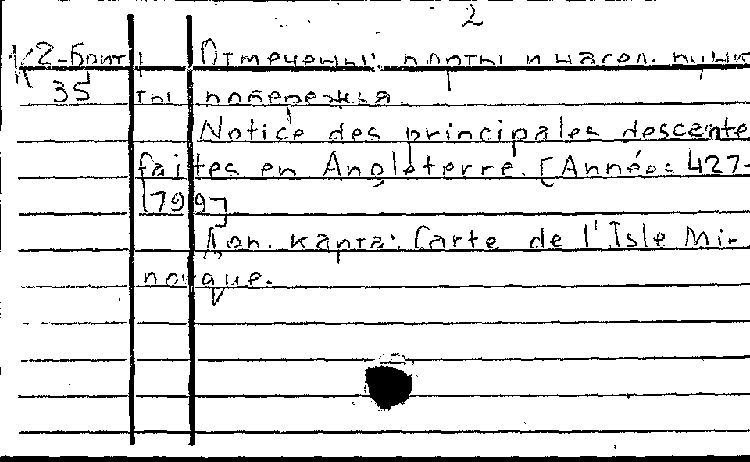 2
К2-Брит Отмечены: порты и насел. пунк
35 ты побережья.
Notice des principales descente
faites en Angleterre. [Années 427-
1799]
Доп. карта: Carte de l'Isle Mi-
norque.